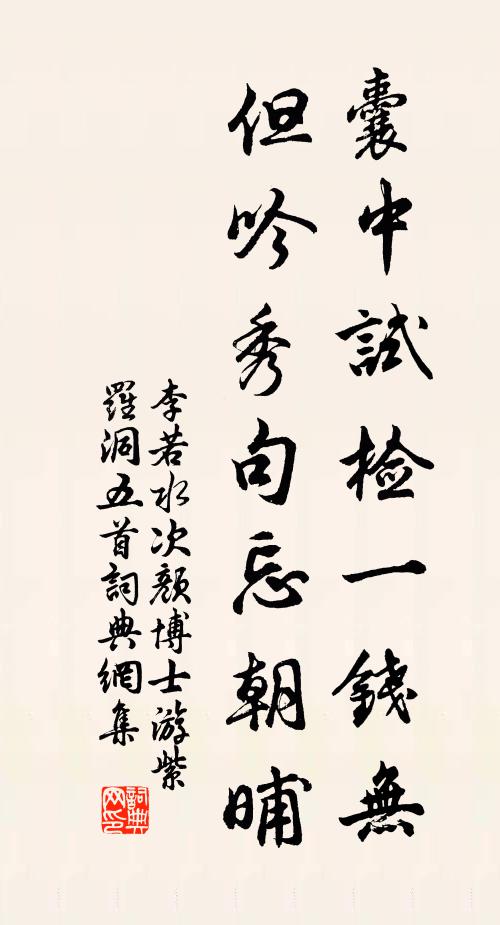 囊中試檢一錢無
但吟秀句忘朝晡
李若水次顏博士游紫
羅洞五首詞典網集
詞典网印